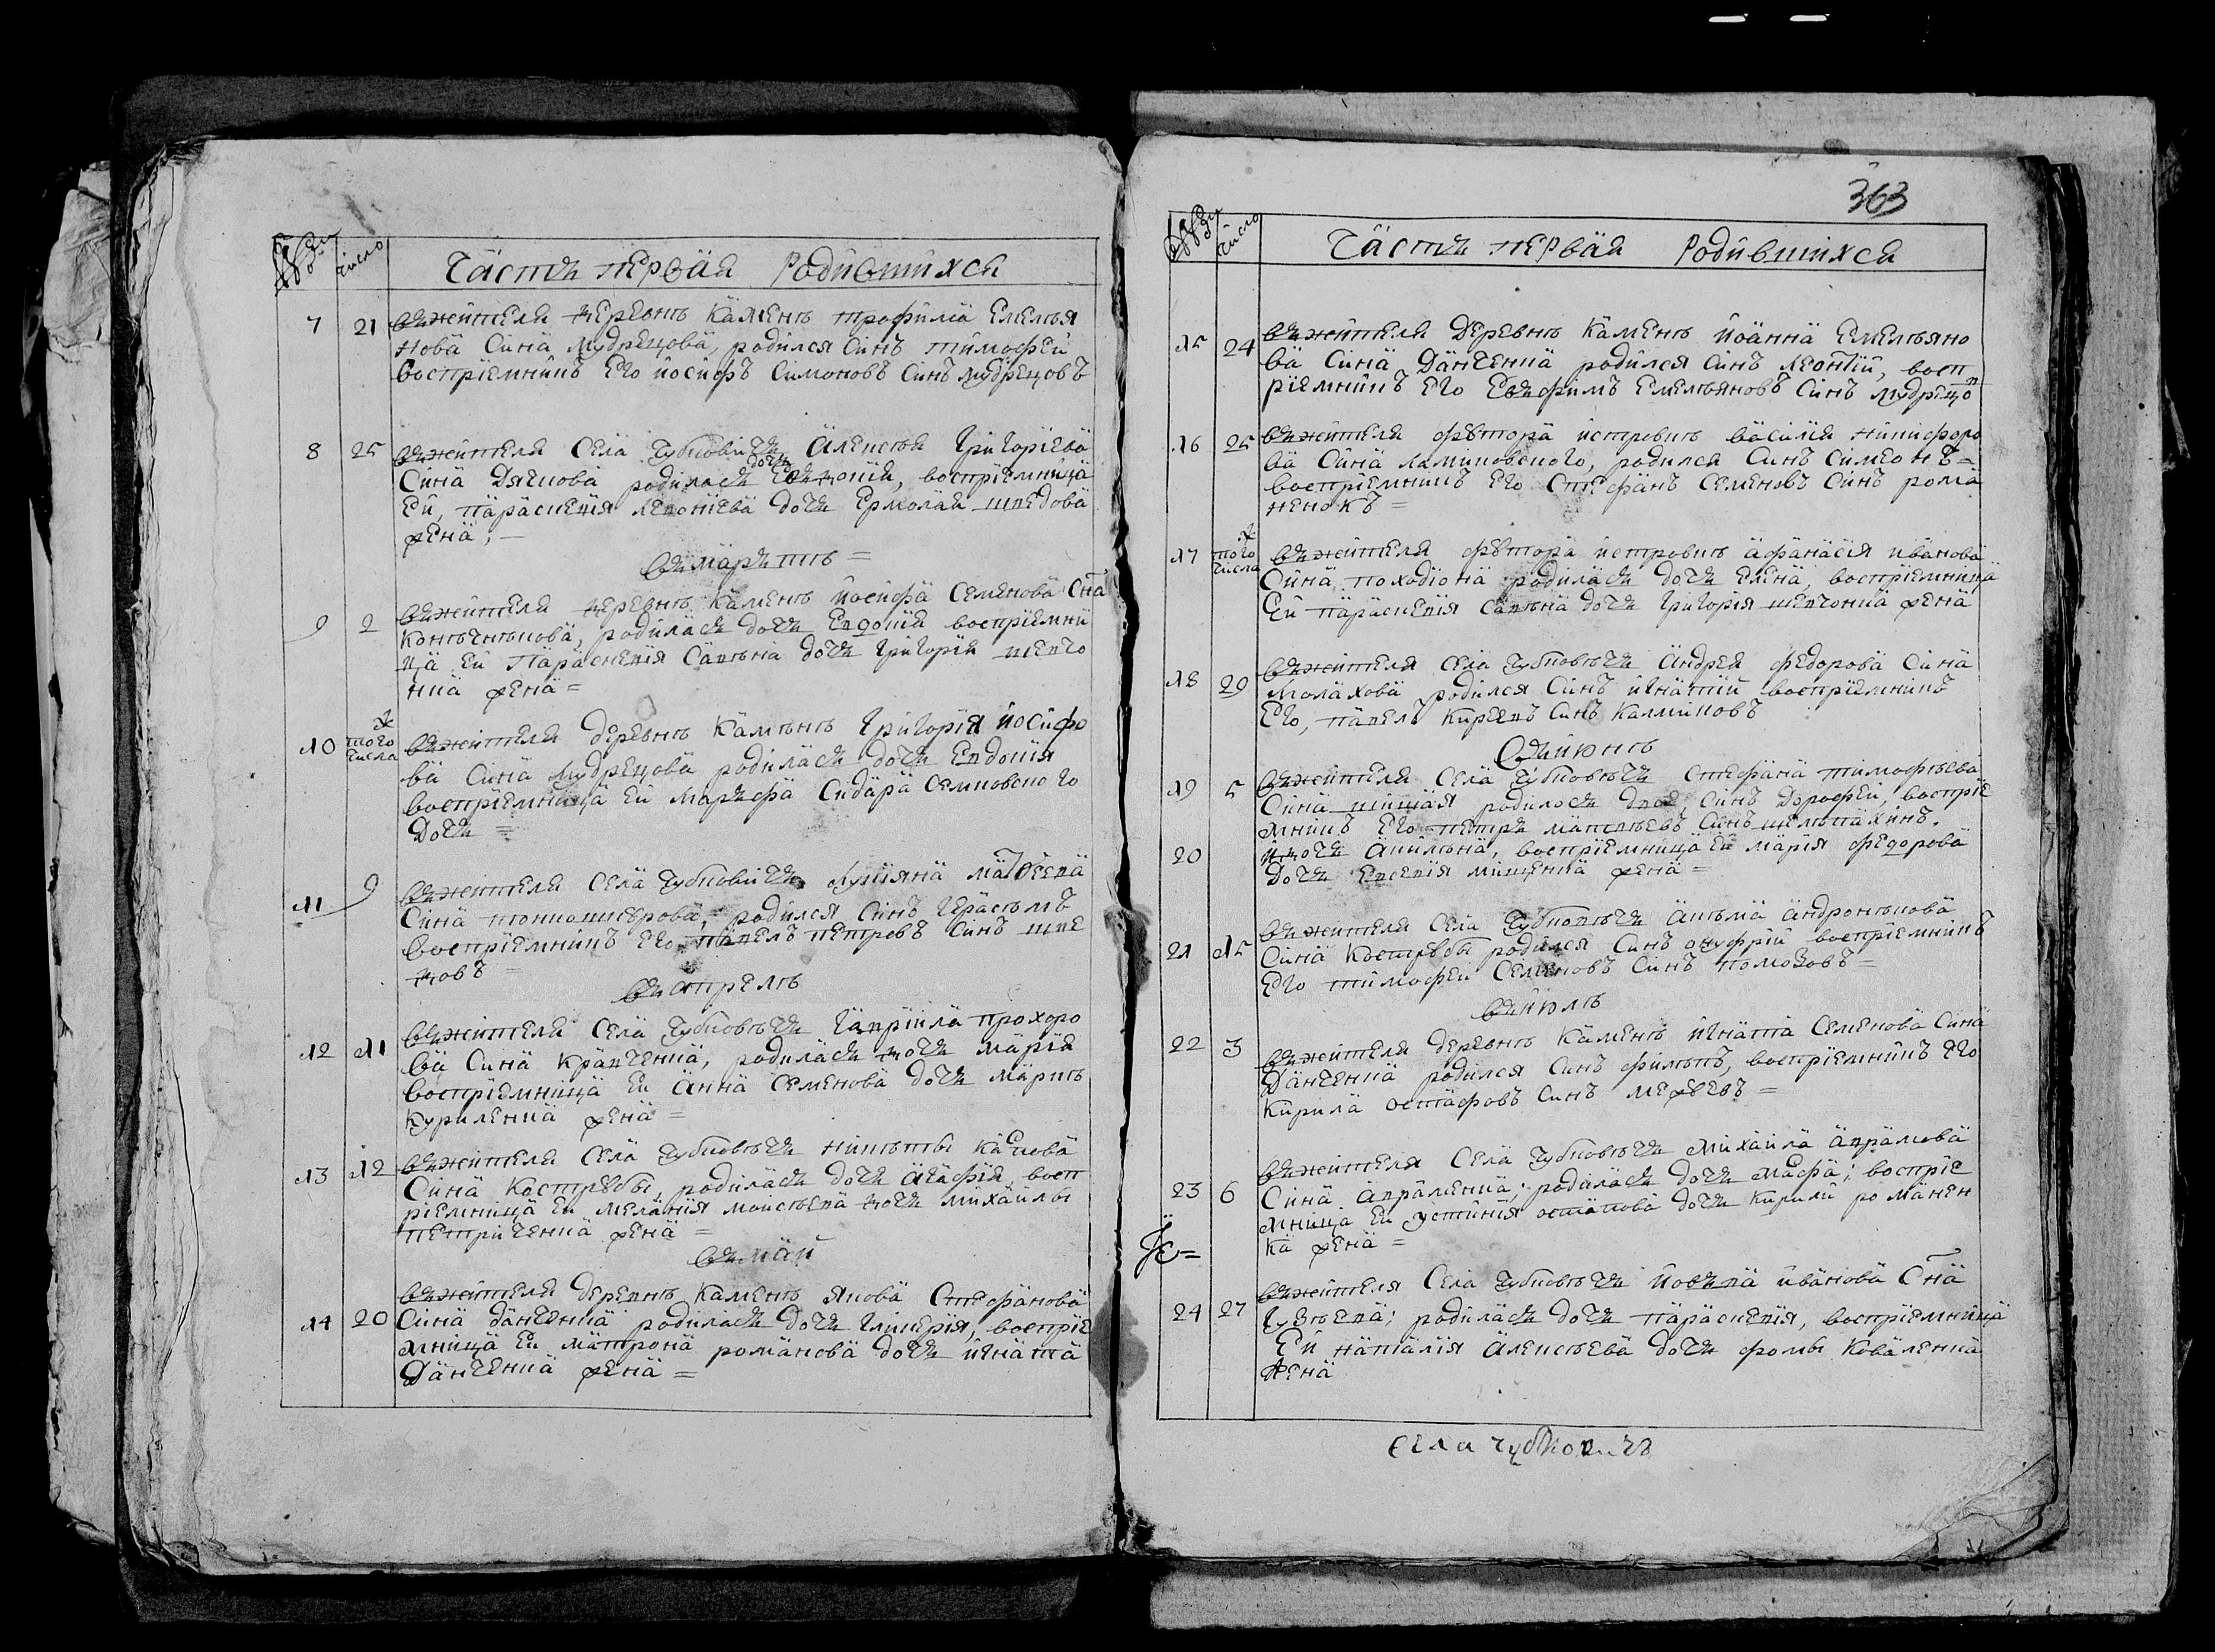 число
часть первая родившихся
7 21 въжителя деревнѣ Каменѣ трофима Емелья
нова Сина Мудрецова, родился Синъ тимофей
воспрїемникъ Его йосифъ Симоновъ Синъ мудрецовъ
8 25 въжителя Села Чубковичъ Алексѣя Григорїева
Сина Дячкова родилась дочъ Евдокїя, восприемница
Ей, параскевїя леконїева дочъ Ермолая шведова
жена; —
въмартѣ =
9 2 въжителя деревнѣ Каменѣ йосифа Семенова Сна
родилась дочъ Евдокїя воспрїемни
ца Ей Параскевїя Савѣна дочъ Григорїя шевчо
нка жена =
10 того числа въжителя деревнѣ Камѣнѣ Григорїя йосифо
ва Сина Мудрецова родилась дочъ Евдокїя
воспрїемница Ей Маръфа Сидара Семковского
Дочъ =
11 9 въжителя Села Чубковичъ Лукїяна матѳеева
Сина родился Синъ Герасѣмъ
воспрїемникъ Его павелъ петровъ Синъ шве
довъ =
въапрелѣ
12 11 въжителя Села Чубковѣчъ Гаврїила прохоро
ва Сина Кравченка, родилась дочъ марїя
воспрїемница Ей Анна Семенова дочъ марка
Куриленка жена =
13 12 въжителя Села Чубковѣчъ никиты Карпова
Сина Кострубы, родилась дочъ Агафїя, восп
рїемница Ей меланїя мойсѣева дочъ михайлы
петриченка жена =
въмай
14 20 въжителя деревнѣ Каменѣ Якова Стефанова
Сина данченка родилась дочъ Гликерїя, воспрїе
мница Ей матрона романова дочъ игната
Данченка жена =
363
число
часть первая родившихся
15 24 въжителя Деревнѣ Каменѣ йоанна Емельяно
ва Сина Данченка родился Синъ леонтїй, восп
рїемникъ Его Евфимъ Емельяновъ Синъ мудрецо
16 25 въжителя футора истровкѣ василия никифоро
ва Сина ламиковского, родился Синъ Симеонъ =
воспрїемникъ Его Стефанъ Семеновъ Синъ рома
ненокъ =
17 того числа въжителя футора истровкѣ афанасїя иванова
Сина походїона родилась дочъ Елена, воспрїемница
Ей параскевїя Савѣна дочъ Григорїя шевчонка жена
18 29 въжителя Села Чубковѣчъ Андрея федорова Сина
Молахова родился Синъ игнатїй воспрїемникъ
Его, павелъ Киреевъ Синъ Калмиковъ
Въиюнѣ
19 5 въжителя Села Чубковѣчъ Стефана тимофѣева
Сина родилось двое, Синъ Дорофей, воспрїе
мникъ Его петръ матвѣевъ Синъ
20 идочъ Акилѣна, воспрїемница Ей марїя федорова
Дочъ Евсевїя мищенка жена =
21 15 въжителя Села Чубковѣчъ Акѣма Андронѣкова
Сина Кострубы родился Синъ онуфрїй воспрїемникъ
Его тимофей Семеновъ Синъ помозовъ =
въиюлѣ
22 3 въжителя деревнѣ Каменѣ игната Семенова Сина
Данченка родился Синъ филѣпъ, воспрїемникъ Его
Кирила остафовъ Синъ межуевъ =
23 6 въжителя Села Чубковѣчъ михаила Аврамова
Сина Авраменка; родилась дочъ марфа; воспрїе
мница Ей устинїя остапова дочъ Кирилй романен
ка жена =
24 27 въжителя Села Чубковѣчъ йосипа иванова Сна
Гузѣева; родилась дочъ параскевїя, воспрїемница
Ей наталїя Алексѣева дочъ фомы Коваленка
жена
Села чубковичъ